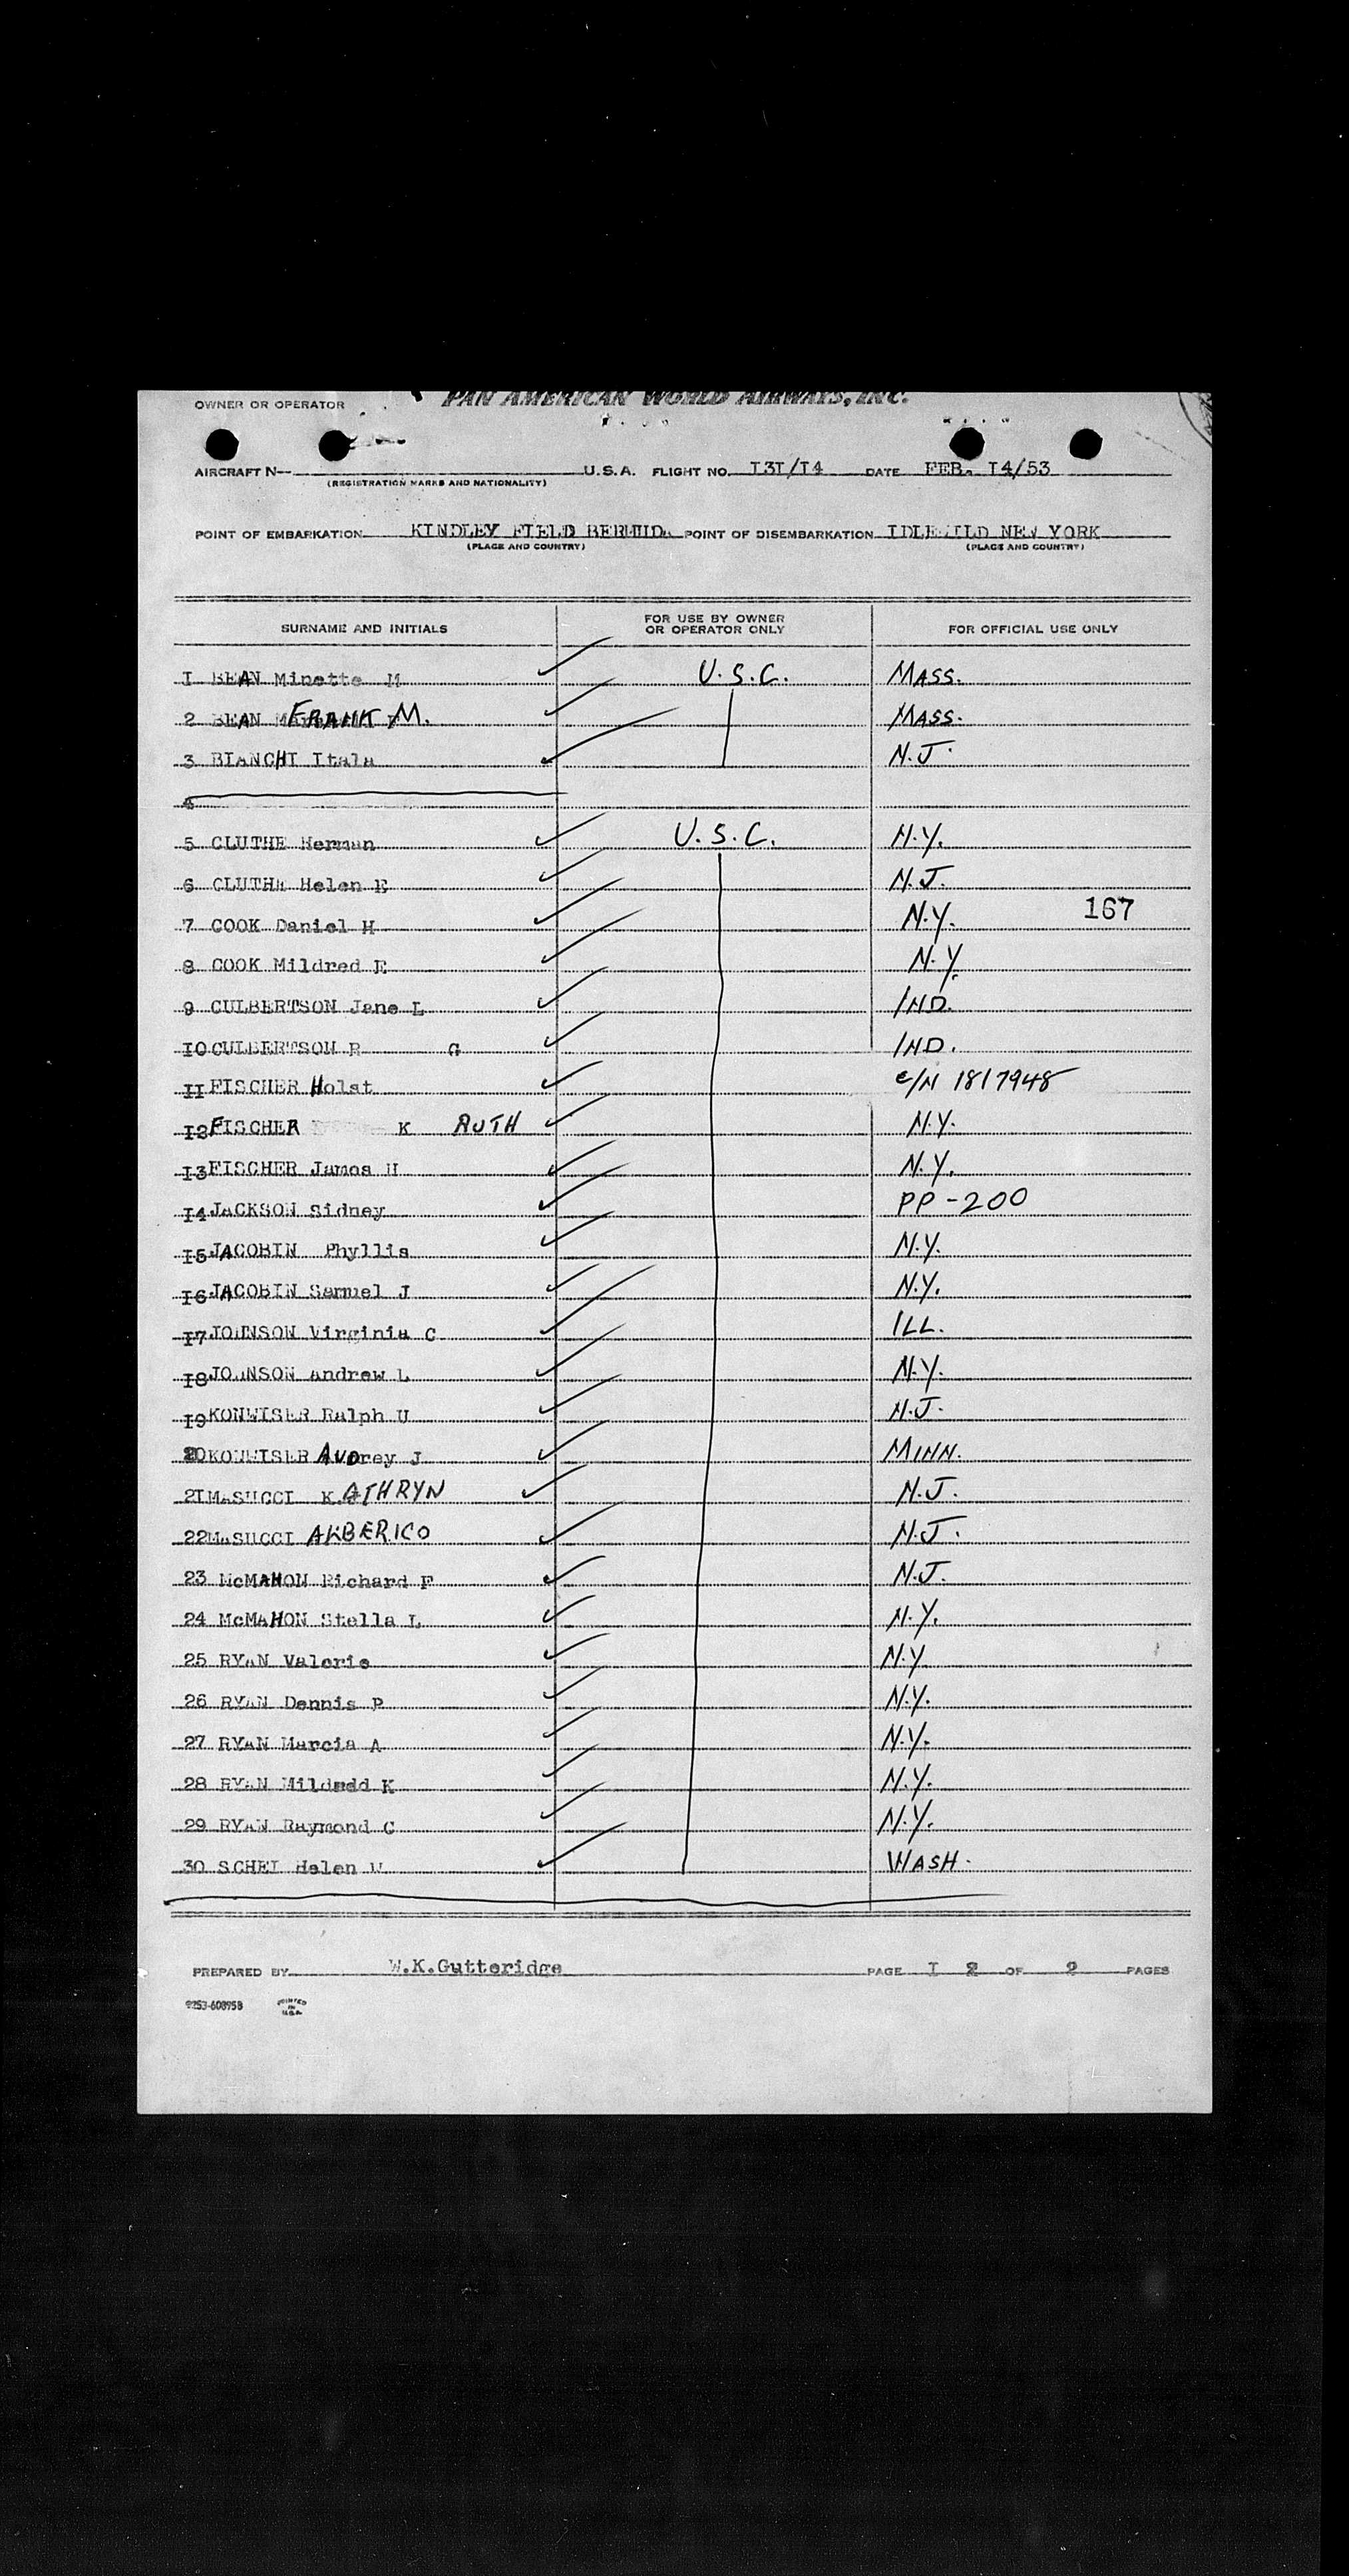 OWNER OR OPERATOR PAN AMERICAN WORLD AIRWAYS, INC.
AIRCRAFT N— U.S.A. FLIGHT NO. I3I/I4 DATE FEB. I4/53
(REGISTRATION MARKS AND NATIONALITY)
POINT OF EMBARKATION KINDLEY FIELD BERMUDA POINT OF DISEMBARKATION IDLEWILD NEW YORK
(PLACE AND COUNTRY) (PLACE AND COUNTRY)
SURNAME AND INITIALS FOR USE BY OWNER OR OPERATOR ONLY FOR OFFICIAL USE ONLY
I BEAN Minette M U.S.C. MASS.
2 BEAN FRANK M. MASS.
3 BIANCHI Itala N.J.
4
5 CLUTHE Herman U.S.C. N.Y.
6 CLUTHE Helen E N.J.
7 COOK Daniel H N.Y. 167
8 COOK Mildred E N.Y.
9 CULBERTSON Jane L IND.
IO CULBERTSON R G IND.
II FISCHER Holst C/N 1817948
I2 FISCHER K RUTH N.Y.
I3 FISCHER James H N.Y.
I4 JACKSON Sidney PP-200
I5 JACOBIN Phyllis N.Y.
I6 JACOBIN Samuel J N.Y.
I7 JOHNSON Virginia C ILL.
I8 JOHNSON Andrew L N.Y.
I9 KONWISER Ralph U N.J.
20 KONWISER AUDrey J MINN.
2I MASUCCI KATHRYN N.J.
22 MASUCCI ALBERICO N.J.
23 McMAHON Richard F N.J.
24 McMAHON Stella L N.Y.
25 RYAN Valerie N.Y
26 RYAN Dennis P N.Y.
27 RYAN Marcia A N.Y.
28 RYAN Mildred K N.Y.
29 RYAN Raymond C N.Y.
30 SCHEI Helen WASH.
PREPARED BY W.K.Gutteridge PAGE I 2 OF 2 PAGES
9253-608958 PRINTED IN U.S.A.